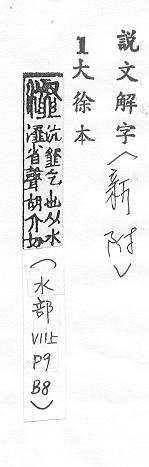 説文解字(新附)
1大徐本
沆瀣气也从水
省聲胡介切
(水部
VIII上
P9
B8)